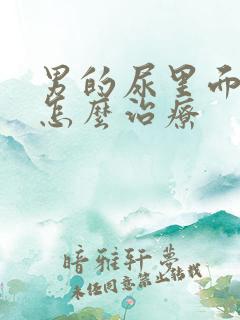 男的尿里面
怎麼治療
暗雅轩梦
未经同意禁止转载